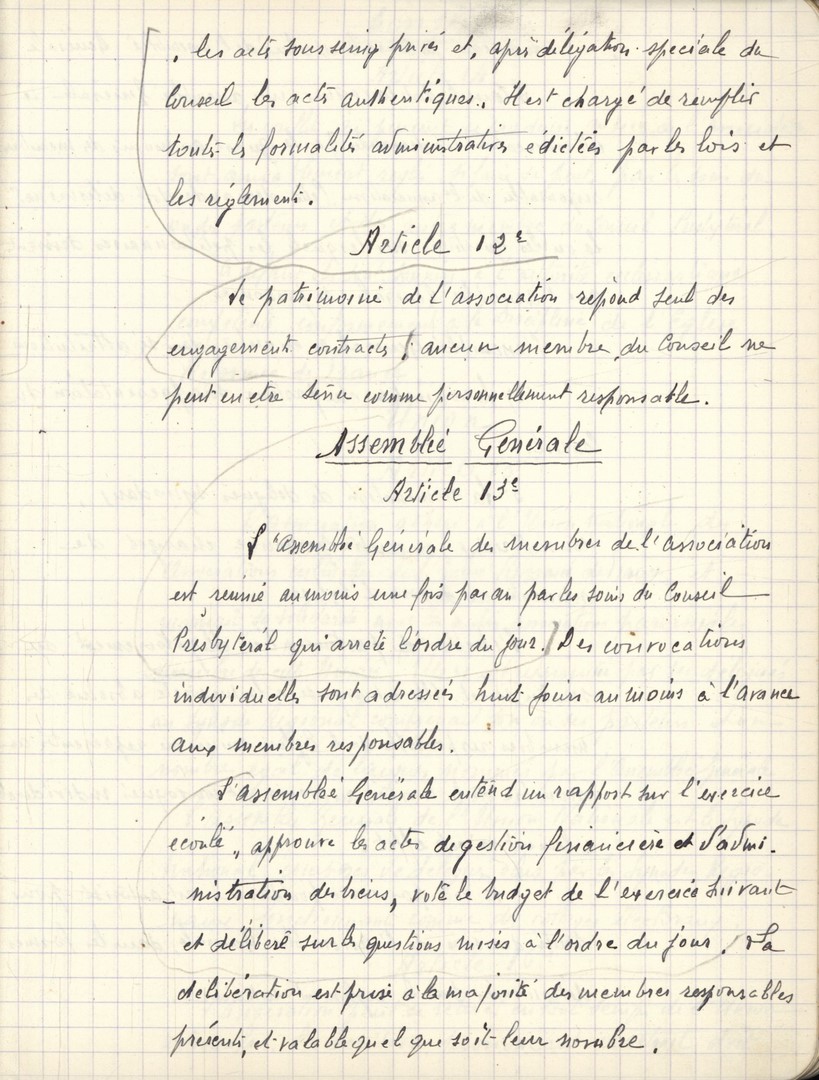 , les acts sous seing privés et, après délégation spéciale du
Conseil les acts authentiques. Il est chargé de remplir
touts ls formalités administratives édictées par les lois et
les règlements.
Article 12e
Le patrimoine de l'association répond seul des
engagements contractés ; aucun membre du Conseil ne
peut en etre tenu comme personnellement responsable.
Assemblée Générale
Article 13e
L'Assemblée Générale des membres de l'association
est réunie au moins une fois par an par les soins du Conseil
Presbytéral qui arrete l'ordre du jour. Des convocations
individuelles sont adressées huit jours au moins à l'avance
aux membres responsables.
L'Assemblée Générale entend un rapport sur l'exercice
écoulé, approuve les actes de gestion financière et d'admi-
-nistration des biens, vote le budget de l'exercice suivant
et délibère sur les questions mises à l'ordre du jour. La
delibération est prise à la majorité des membres responsables
présents, et valable quel que soit leur nombre.